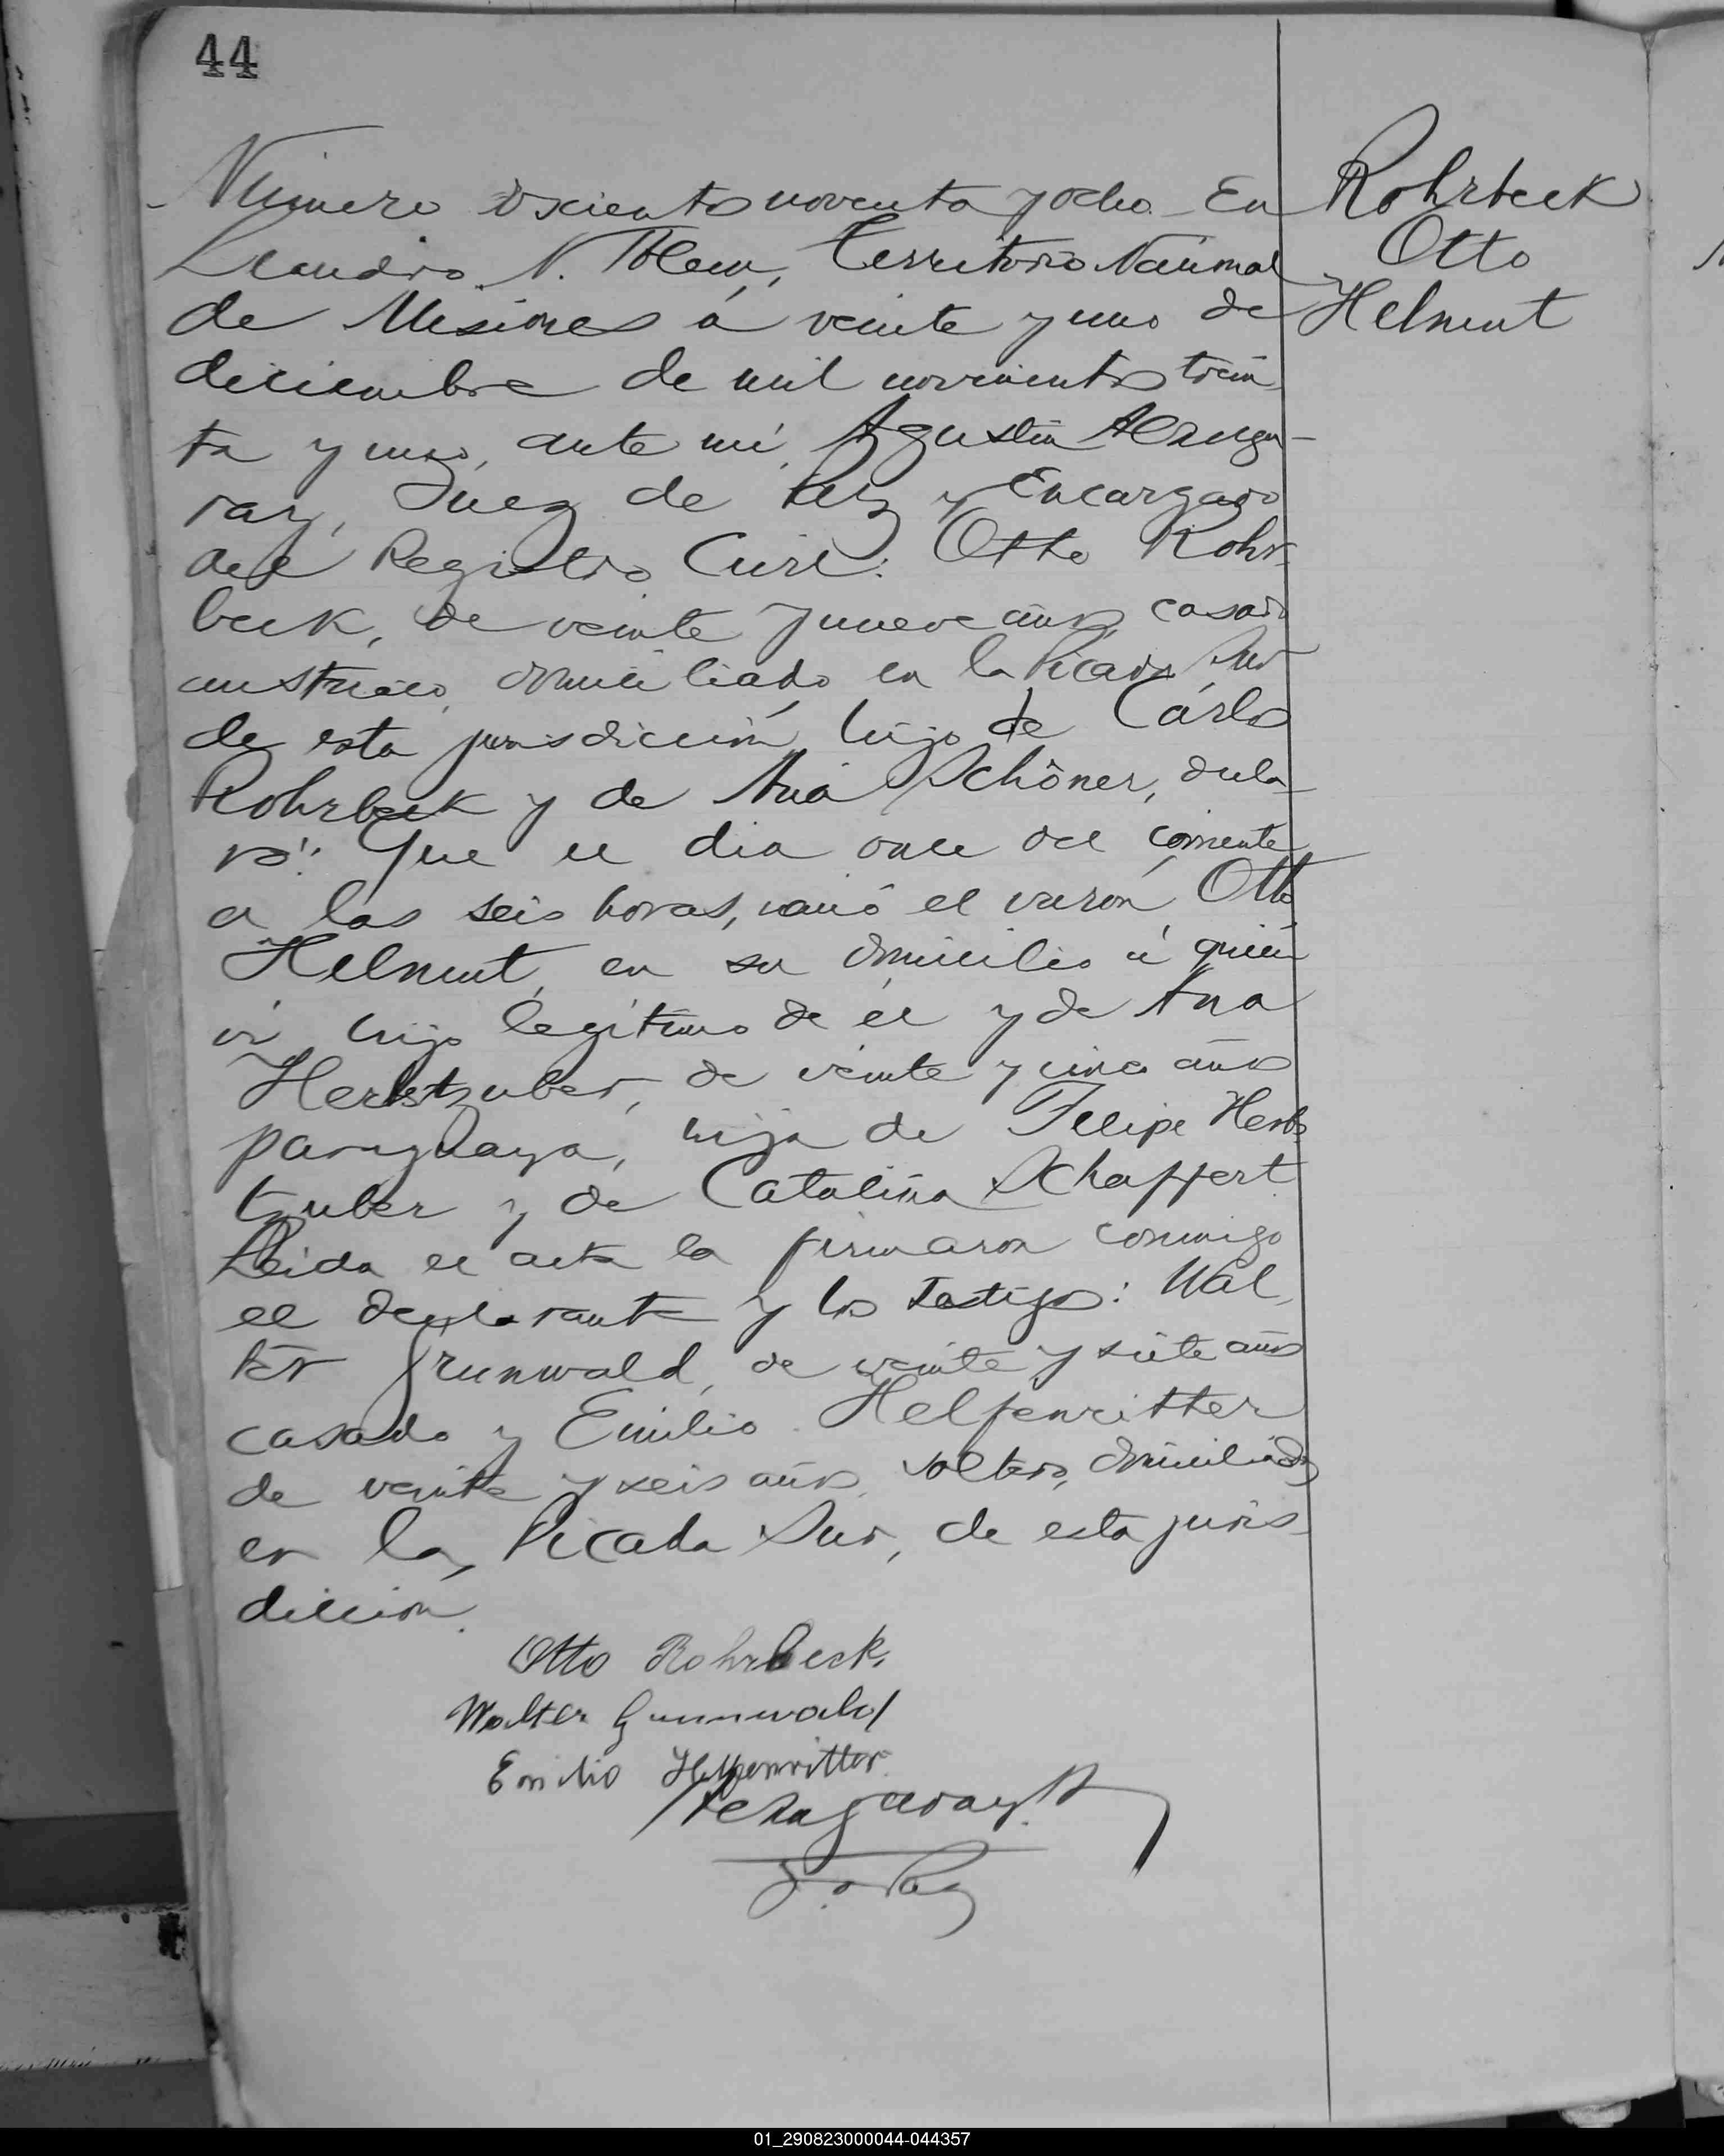 44
Número doscientos noventa y ocho. En
Leandro N. Alem, Territorio Nacional
de Misiones á veinte y uno de
diciembre de mil novecientos trein
ta y uno, ante mí, Agustín Alzuga-
ray, Juez de Paz y Encargado
del Registro Civil: Otto Rohr-
beck, de veinte y nueve años, casado
austriaco, domiciliado en la Picada Sur
de esta jurisdicción, hijo de Cárlos
Rohrbeck y de Ana Schöner, decla-
ró: Que el dia once del corriente
a las seis horas, nació el varón Otto
Helmut, en su domicilio á quién
ví, hijo legítimo de él y de Ana
Herbstzuber, de veinte y cinco años
paraguaya, hija de Felipe Herbs
tzuber y de Catalina Schaffert
Leida el acta la firmaron conmigo
el declarante y los testigos: Wal
ter Grunwald, de veinte y siete años
casado y Emilio Helfenritter
de veinte y seis años, soltero, domiciliados
en la Picada Sur, de esta juris-
dicción.
Rohrbeck
Otto
Helmut
Otto Rohrbeck.
Walter Grunnwald
Emilio Helfenritter
Alzugaray A
J. de Paz
01_290823000044-044357